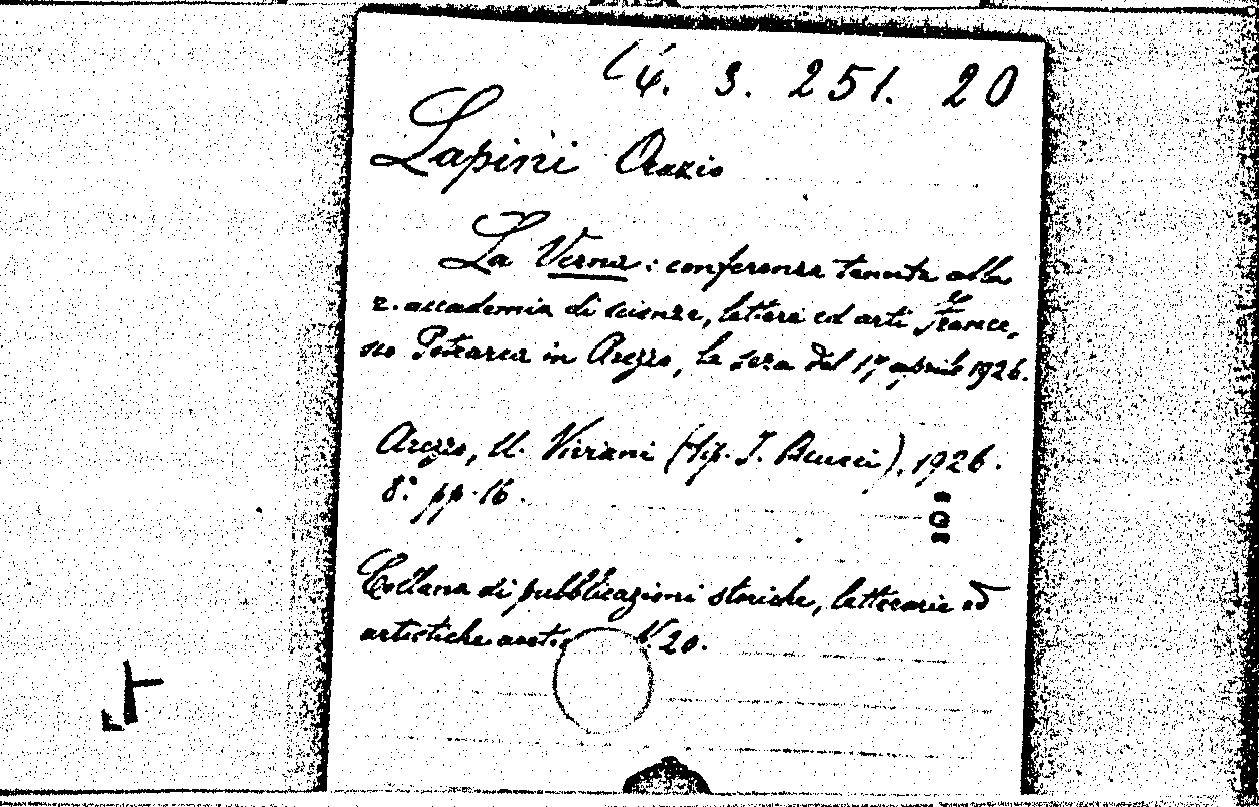 4. 3. 251. 20
Lapini Orazio
La Verna: conferenza tenuta alla
r. accademia di scienze, lettere ed arti France,
sco Petrarca in Arezzo, la sera del 17 aprile 1926.
Arezzo, U. Viviani (tip. I. Beucci), 1926.
8° pp. 16.
Collana di pubblicazioni storiche, letterarie ed
artistiche aretine 20.